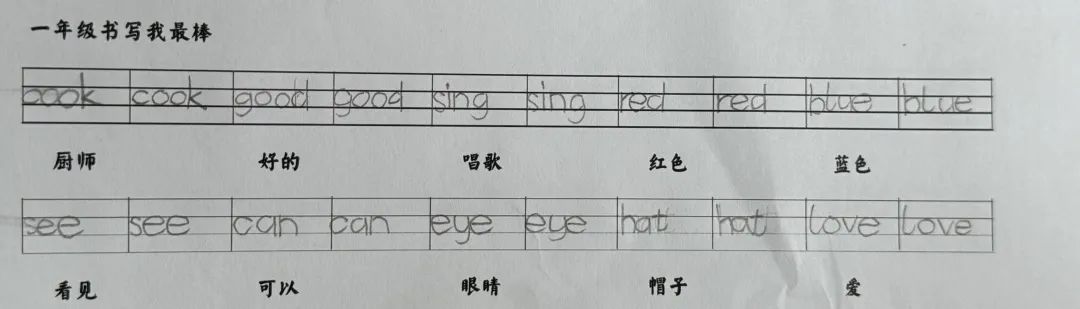 一年级书写我最棒
cook cook good good sing sing red red blue blue
厨师 好的 唱歌 红色 蓝色
see see can can eye eye hat hat love love
看见 可以 眼睛 帽子 爱